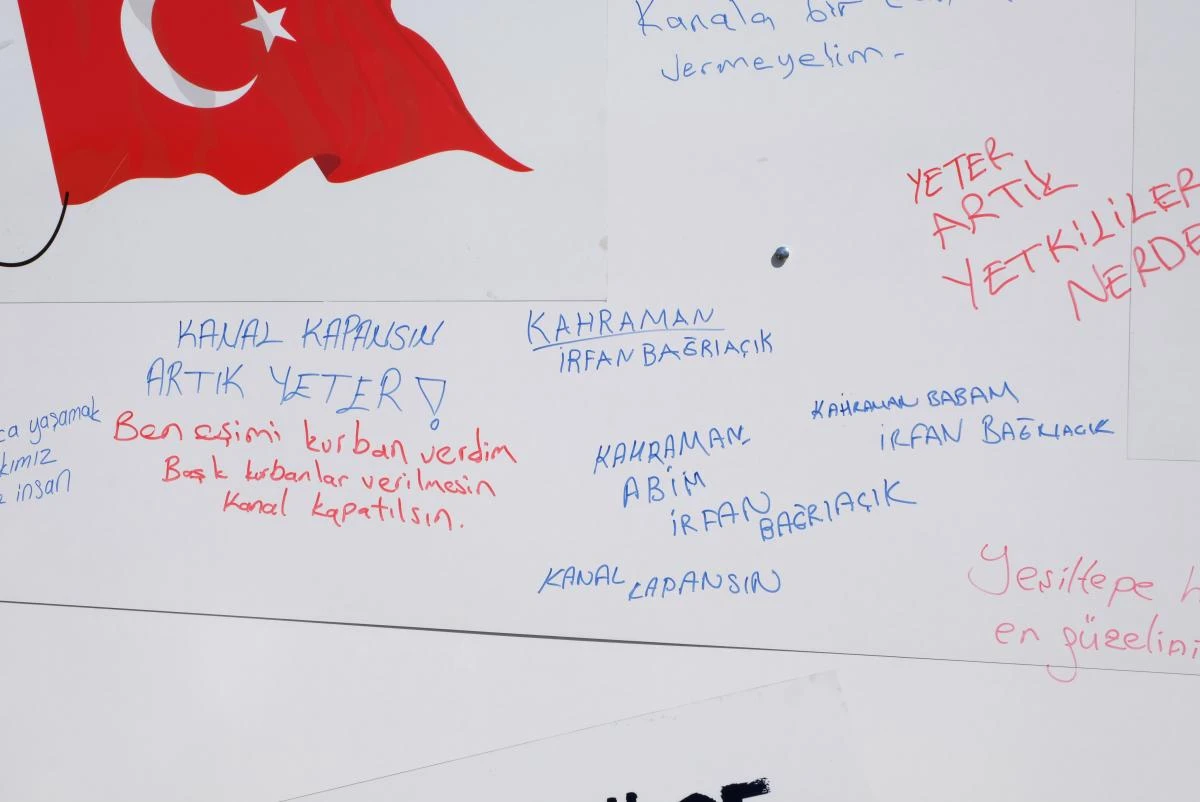 Kanala bir
vermeyelim.
YETER
ARTIK
YETKİLİLER
NERDE
KANAL KAPANSIN
ARTIK YETER!
KAHRAMAN
İRFAN BAĞRIAÇIK
ca yaşamak
kımız
insan
Ben eşimi kurban verdim
Başk kurbanlar verilmesin
Kanal kapatılsın.
KAHRAMAN BABAM
İRFAN BAĞRIAÇIK
KAHRAMAN
ABİM
İRFAN
BAĞRIAÇIK
KANAL KAPANSIN
Yeşiltepe
en güzelini